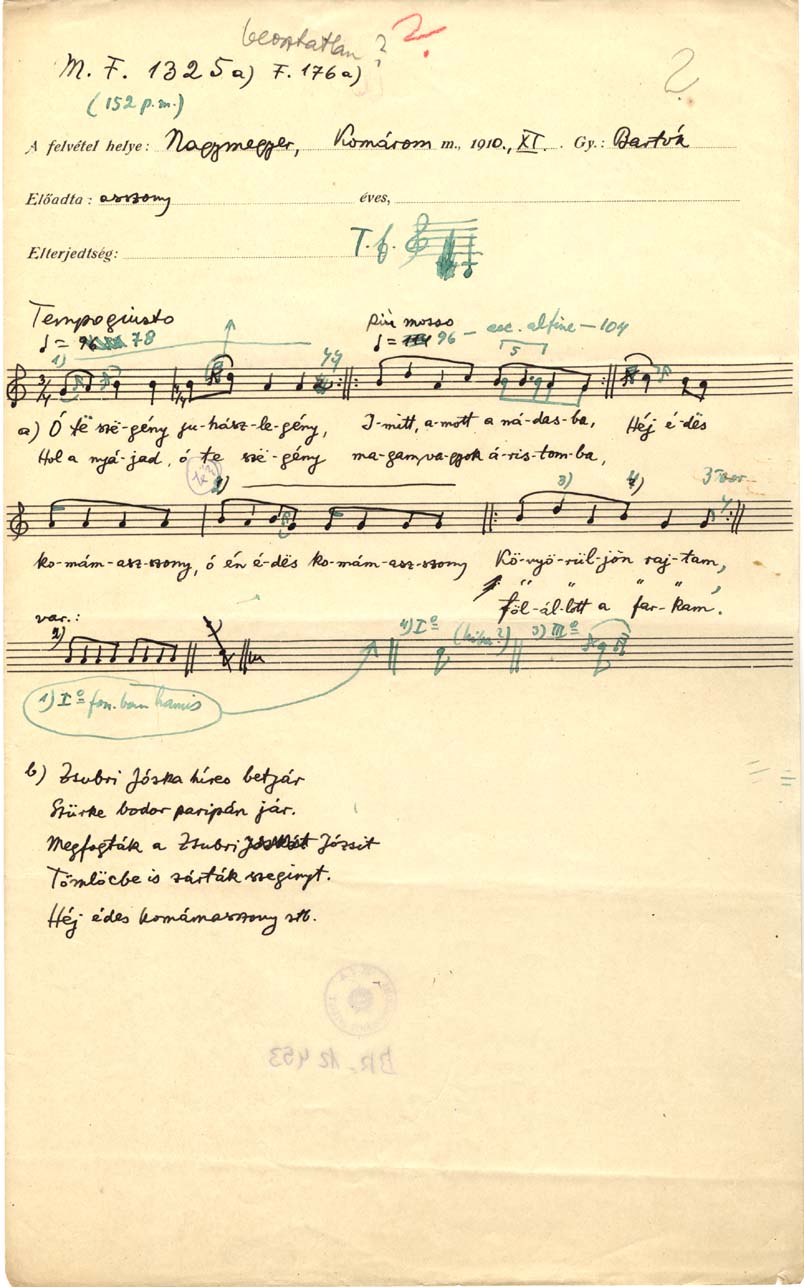 beosztatlan ? 2.
M. F. 1325a) F. 176a) ?
(152 p.m.)
A felvétel helye: Nagymegyer, Komárom m., 1910., XI. Gy.: Bartók
Előadta: asszony éves,
Elterjedtség: T. f.
Tempo giusto più mosso
♩ = 78 ♩ = 96 – acc. al fine – 104
1) 5
a) Ó të szë-gény ju-hász-le-gény, I-mitt, a-mott a ná-das-ba, Héj é-dës
Hol a nyá-jad, ó te szë-gény ma-gam va-gyok á-ris-tom-ba,
2) 3) 4) 3-szor
ko-mám-asz-szony, ó én é-dës ko-mám-asz-szony Kö-vyö-rül-jön raj-tam,
föl-ál-lott a far-kam.
var.:
2) 4) I⁰ (hiba?) 3) III⁰
1) I⁰ fon.-ban hamis
b) Zsubri Jóska híres betyár
Szürke bodor paripán jár.
Megfogták a Zsubri Józsit
Tömlöcbe is zárták szeginyt.
Héj édes komámasszony stb.
BR. 12453